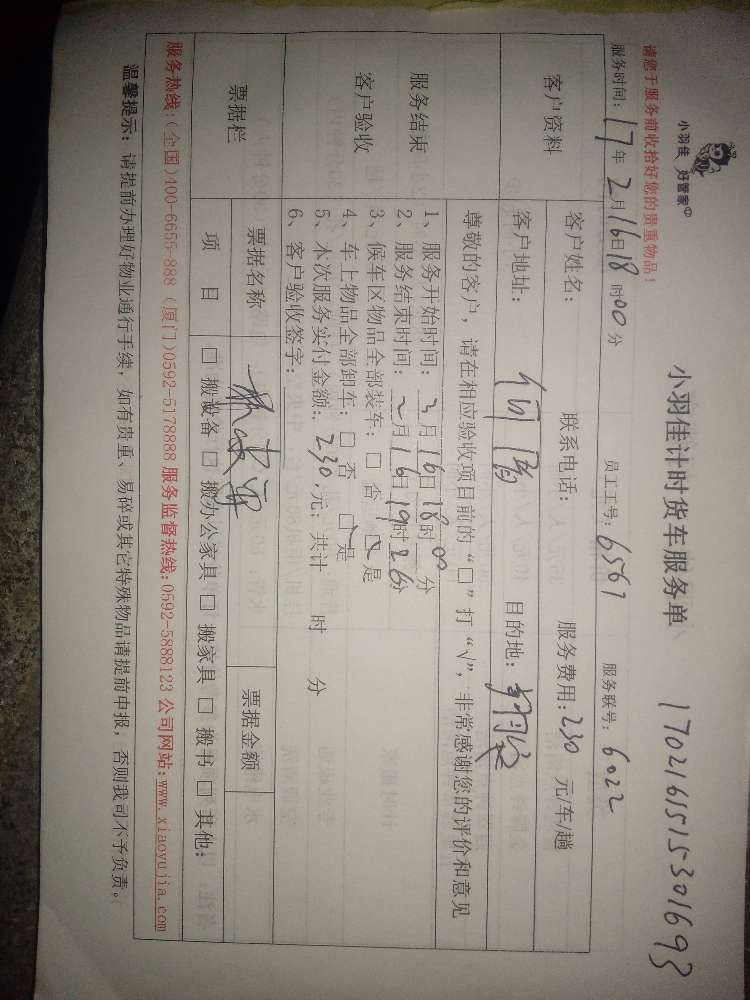 小羽佳 好管家
小羽佳计时货车服务单 1702161515301693
请您于服务前收拾好您的贵重物品！
服务时间：17年2月16日18时00分 员工工号：6567 服务联号：6022
客户资料
客户姓名： 联系电话： 服务费用：230 元/车/趟
客户地址： 目的地：
服务结束
客户验收
尊敬的客户，请在相应验收项目前的“□”打“√”，非常感谢您的评价和意见
1、服务开始时间：2月16日18时00分
2、服务结束时间：2月16日19时26分
3、候车区物品全部装车：□ 否 ☑ 是
4、车上物品全部卸车：□ 否 ☑ 是
5、本次服务实付金额：230.元；共计 时 分
6、客户验收签字：
票据栏
票据名称 票据金额
项 目 □ 搬设备 □ 搬办公家具 □ 搬家具 □ 搬书 □ 其他：
服务热线：（全国）400-6655-888（厦门）0592-5178888 服务监督热线：0592-5888123 公司网站：www.xiaoyujia.com
温馨提示：请提前办理好物业通行手续，如有贵重、易碎或其它特殊物品请提前申报，否则我司不予负责。